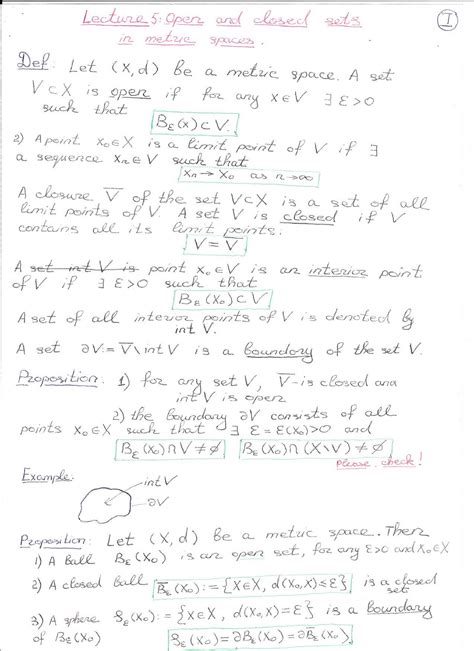 Lecture 5: Open and closed sets
in metric spaces.
I
Def: Let (X,d) be a metric space. A set
V⊂X is open if for any x∈V ∃ ε>0
such that
B_ε(x)⊂V.
2) A point x₀∈X is a limit point of V if ∃
a sequence xₙ∈V such that
xₙ → x₀ as n→∞
A closure V̅ of the set V⊂X is a set of all
limit points of V. A set V is closed if V
contains all its limit points:
V = V̅
A ~~set int V is~~ point x₀∈V is an interior point
of V if ∃ ε>0 such that
B_ε(x₀)⊂V.
A set of all interior points of V is denoted by
int V.
A set ∂V:=V̅\int V is a boundary of the set V.
Proposition: 1) for any set V, V̅-is closed and
int V is open
2) the boundary ∂V consists of all
points x₀∈X such that ∃ ε=ε(x₀)>0 and
B_ε(x₀)∩V≠∅ B_ε(x₀)∩(X\V)≠∅
please, check!
Example:
int V
∂V
Proposition: Let (X,d) be a metric space. Then
1) A Ball B_ε(x₀) is an open set, for any ε>0 and x₀∈X
2) A closed ball B̅_ε(x₀):={x∈X, d(x₀,x)≤ε} is a closed
set
3) A sphere S_ε(x₀):={x∈X, d(x₀,x)=ε} is a boundary
of B_ε(x₀) S_ε(x₀)=∂B_ε(x₀)=∂B̅_ε(x₀).